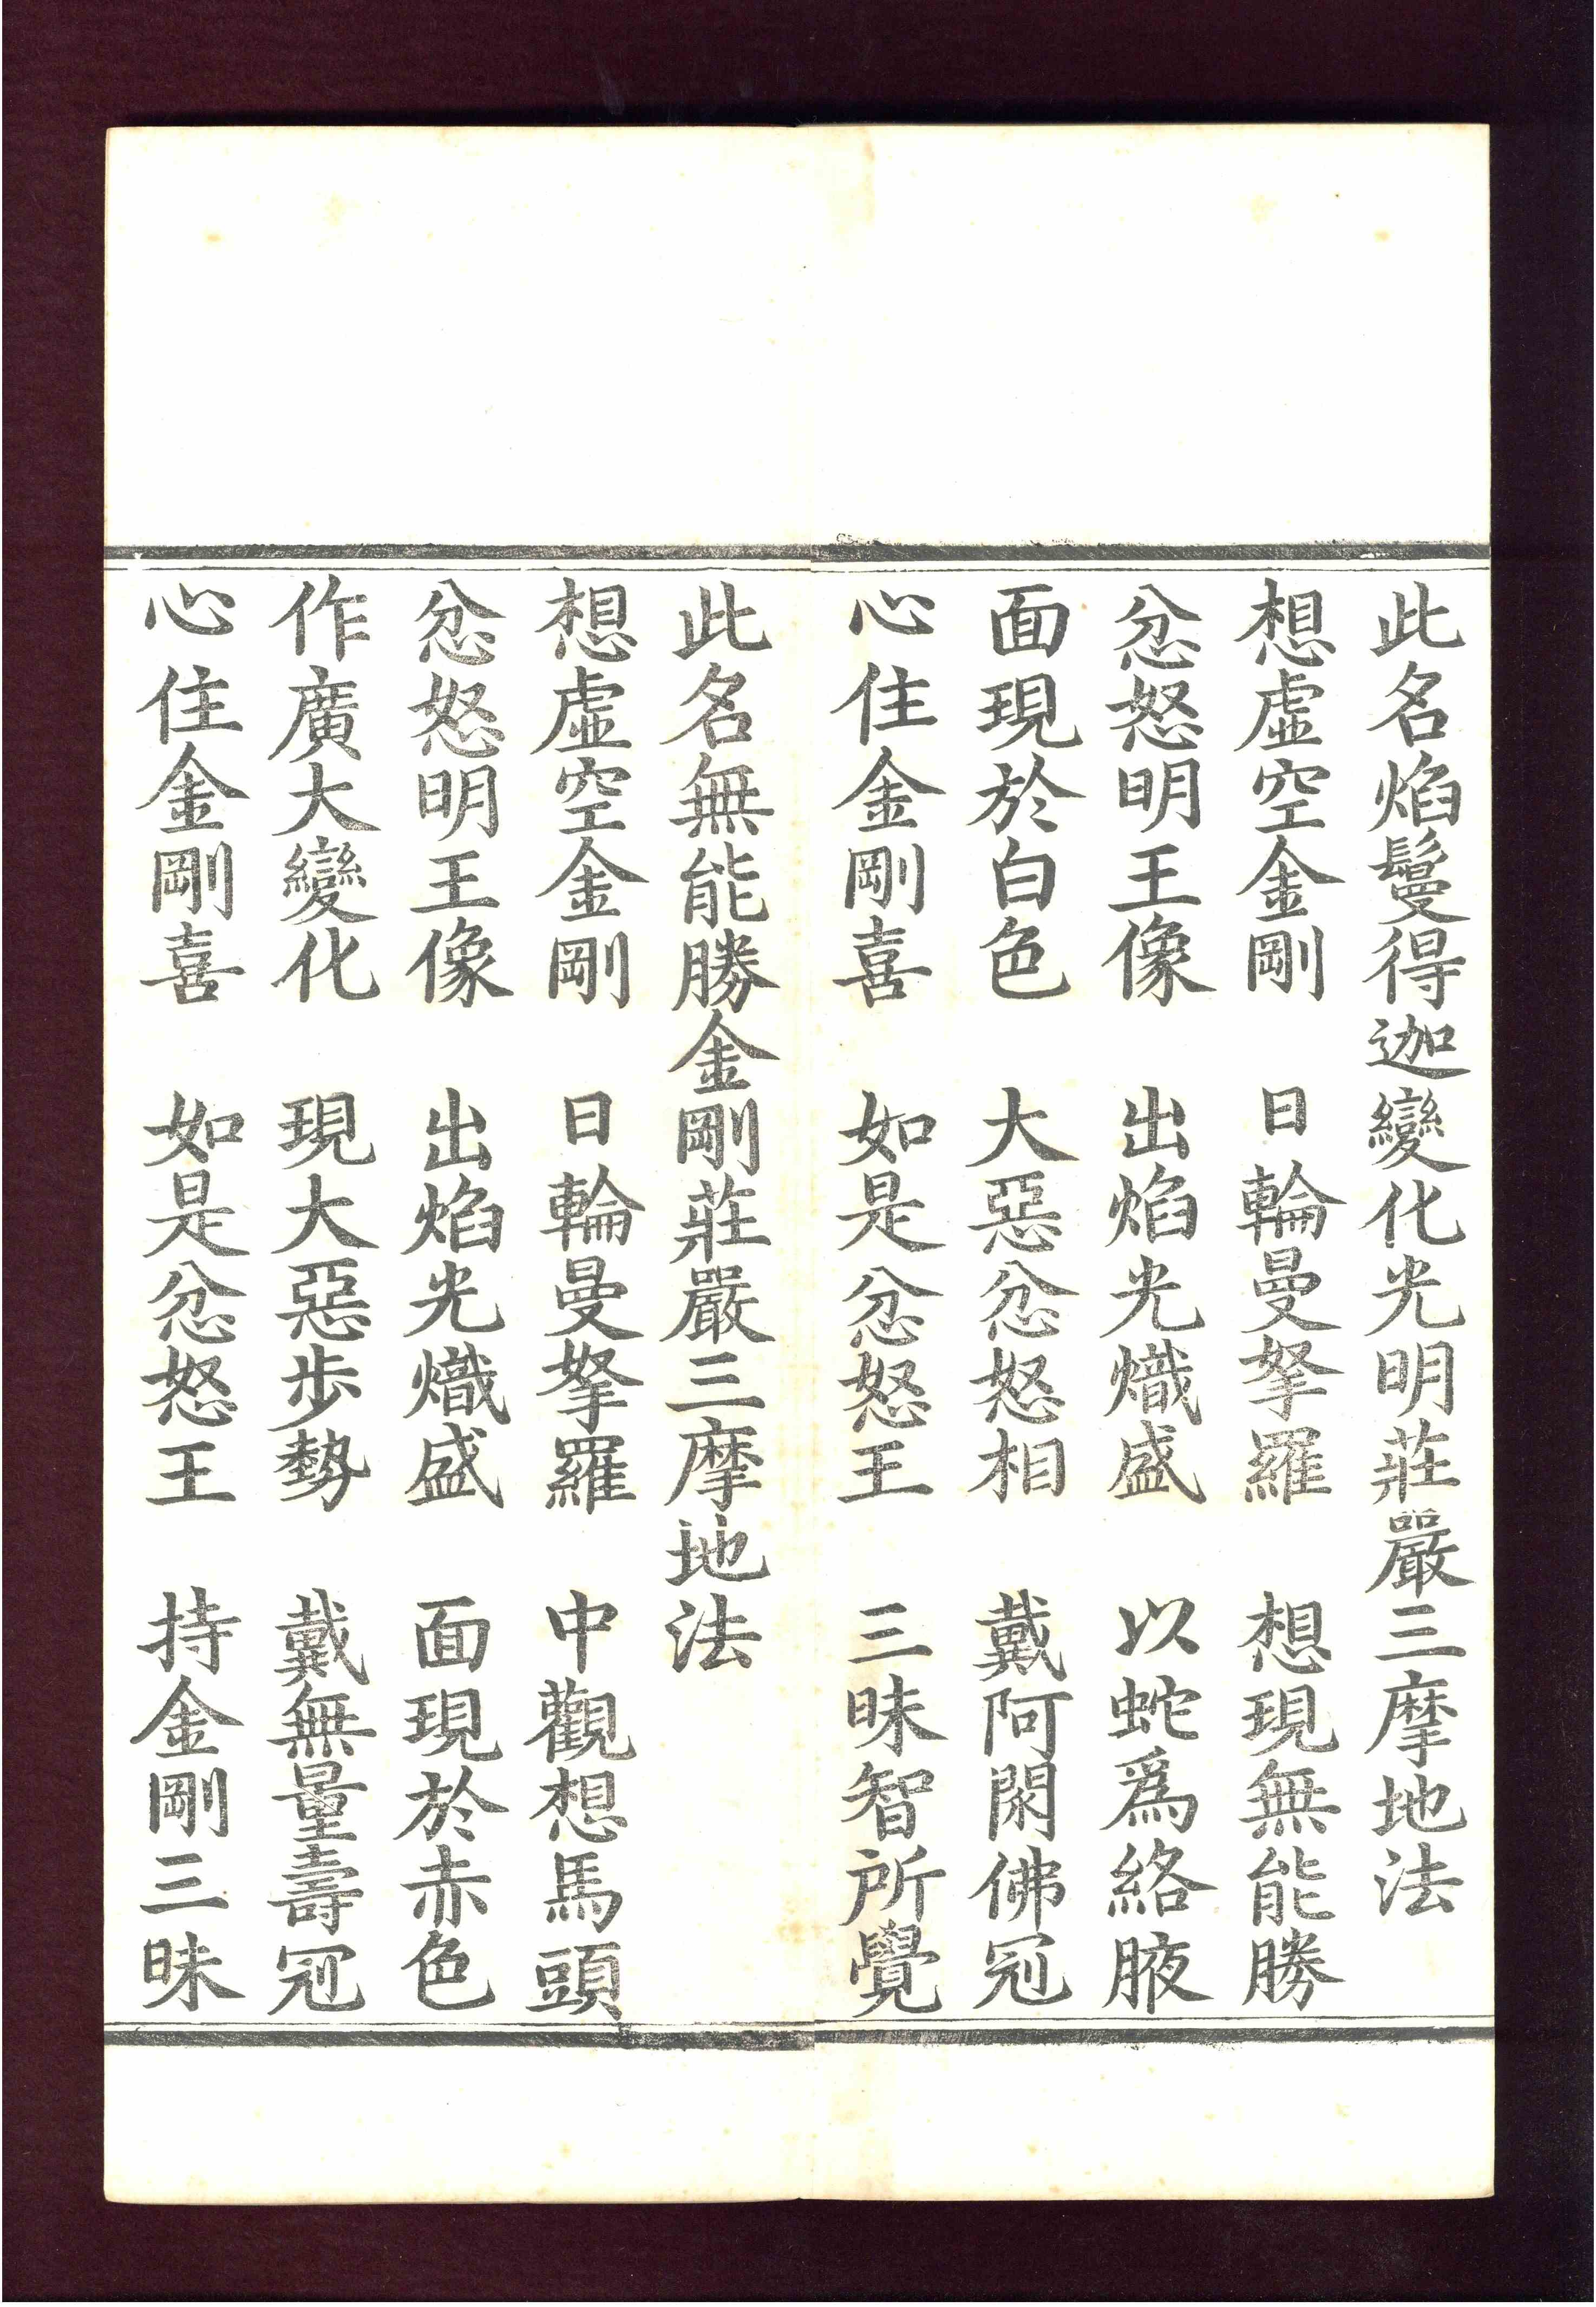 此名焰鬘得迦變化光明莊嚴三摩地法
想虛空金剛　日輪曼拏羅　想現無能勝
忿怒明王像　出焰光熾盛　以蛇爲絡腋
面現於白色　大惡忿怒相　戴阿閦佛冠
心住金剛喜　如是忿怒王　三昧智所覺
此名無能勝金剛莊嚴三摩地法
想虛空金剛　日輪曼拏羅　中觀想馬頭
忿怒明王像　出焰光熾盛　面現於赤色
作廣大變化　現大惡步勢　戴無量壽冠
心住金剛喜　如是忿怒王　持金剛三昧